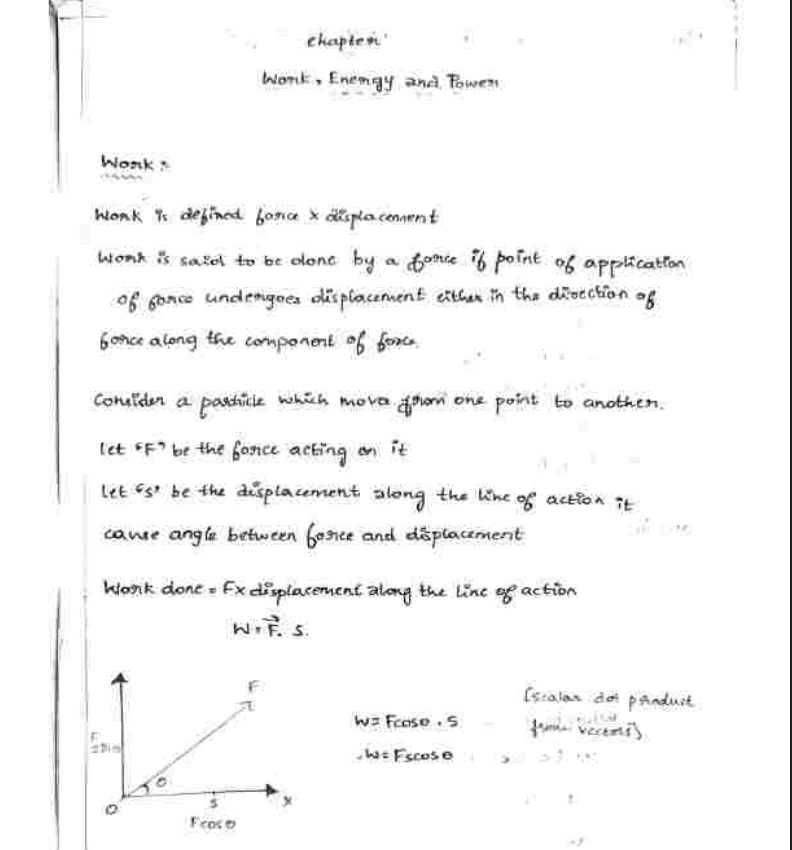 chapter
Work, Energy and Power
Work :
Work is defined force x displacement
Work is said to be done by a force if point of application
of force undergoes displacement either in the direction of
force along the component of force.
Consider a particle which move from one point to another.
Let "F" be the force acting on it
Let "s" be the displacement along the line of action it
cause angle between force and displacement
Work done = Fx displacement along the line of action
W = F⃗. S.
F
W = Fcosθ . S
(scalar dot product
from vectors)
W = Fscosθ
F
θ
O
S
X
Fcosθ